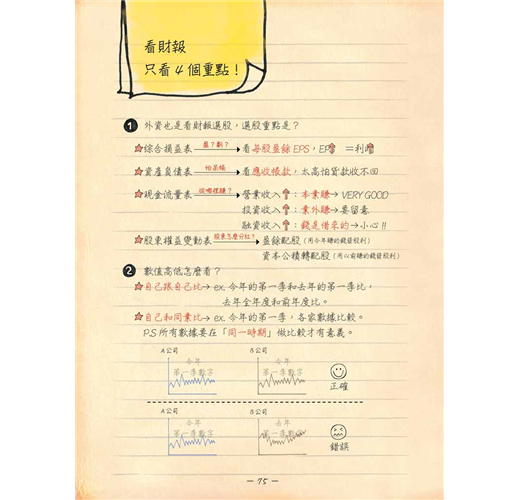 看財報
只看4個重點！
1 外資也是看財報選股，選股重點是？
綜合損益表 賺？虧？ → 看每股盈餘EPS，EPS↑ =利↑
資產負債表 怕呆帳 → 看應收帳款，太高怕貨款收不回
現金流量表 從哪裡賺？ → 營業收入↑：本業賺→VERY GOOD
投資收入↑：業外賺→要留意
融資收入↑：錢是借來的→小心!!
股東權益變動表 股東怎麼分紅？ → 盈餘配股（用今年賺的錢發股利）
資本公積轉配股（用以前賺的錢發股利）
2 數值高低怎麼看？
自己跟自己比→ex.今年的第一季和去年的第一季比，
去年全年度和前年度比。
自己和同業比→ex.今年的第一季，各家數據比較。
P.S 所有數據要在「同一時期」做比較才有意義。
A公司 B公司
今年 今年
第一季數字 第一季數字
正確
A公司 B公司
今年 去年
第一季數字 第一季數字
錯誤
— 75 —